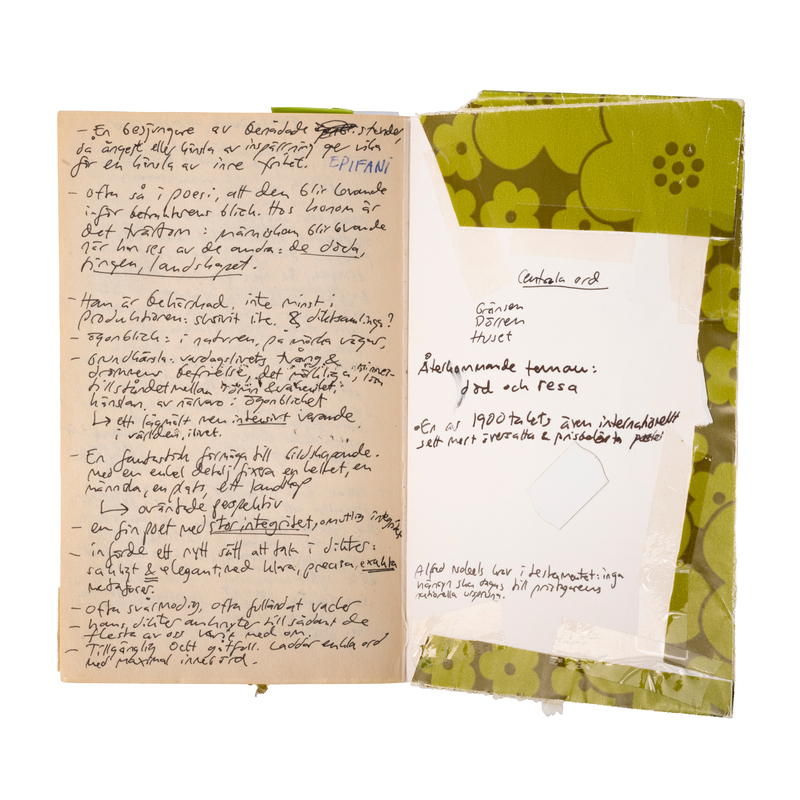 – En besjungare av benådade stunder,
då ångest eller känsla av inspärrning ger vika
för en känsla av inre frihet. EPIFANI
– ofta så i poesi, att den blir levande
inför betraktarens blick. Hos honom är
det tvärtom: människan blir levande
när han ses av de andra: de döda,
tingen, landskapet.
– Han är behärskad, inte minst i
produktionen: skrivit lite. 8 diktsamlingar?
– ögonblick: i naturen, på mörka vägar,
– Grundkänsla: vardagslivets tvång &
drömmens befrielse, det märkliga,
tillståndet mellan dröm & vakenhet:
känslan av närvaro i ögonblicket
↳ ett lågmält men intensivt varande
i världen, livet.
– En fantastisk förmåga till bildskapande.
med en enkel detalj fixera en helhet, en
människa, en plats, ett landskap
↳ oväntade perspektiv
– en fin poet med stor integritet, omutlig integritet
– införde ett nytt sätt att tala i dikter:
sakligt & elegant, med klara, precisa, exakta
metaforer.
– ofta svårmodig, ofta fulländat vacker
– hans dikter anknyter till sådant de
flesta av oss varit med om.
– Tillgänglig OCH gåtfull. Laddar enkla ord
med maximal innebörd.
Centrala ord
Gränsen
Dörren
Huset
Återkommande teman:
död och resa
• En av 1900talets även internationellt
sett mest översatta & prisbelönta poeter
Alfred Nobels krav i testamentet: inga
hänsyn ska tagas till pristagarens
nationella ursprung.